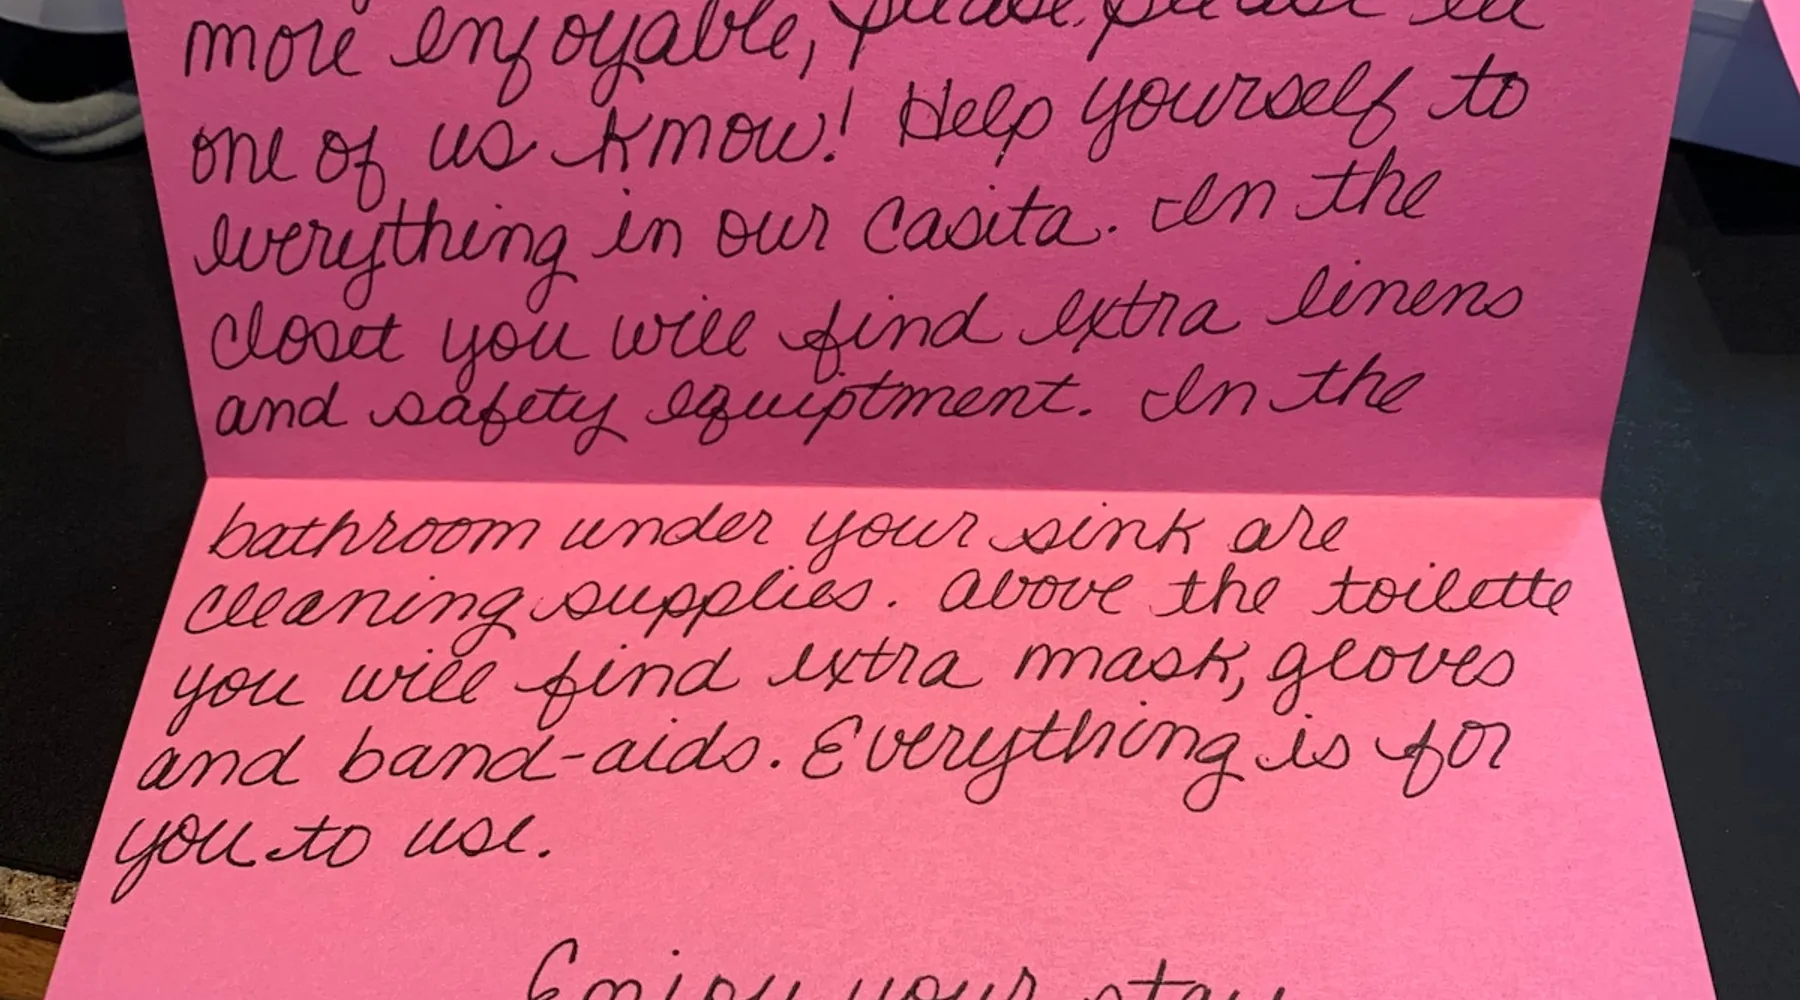 more enjoyable, please please let
one of us know! Help yourself to
everything in our Casita. In the
closet you will find extra linens
and safety equiptment. In the
bathroom under your sink are
cleaning supplies. Above the toilette
you will find extra mask, gloves
and band-aids. Everything is for
you to use.
Enjoy your stay